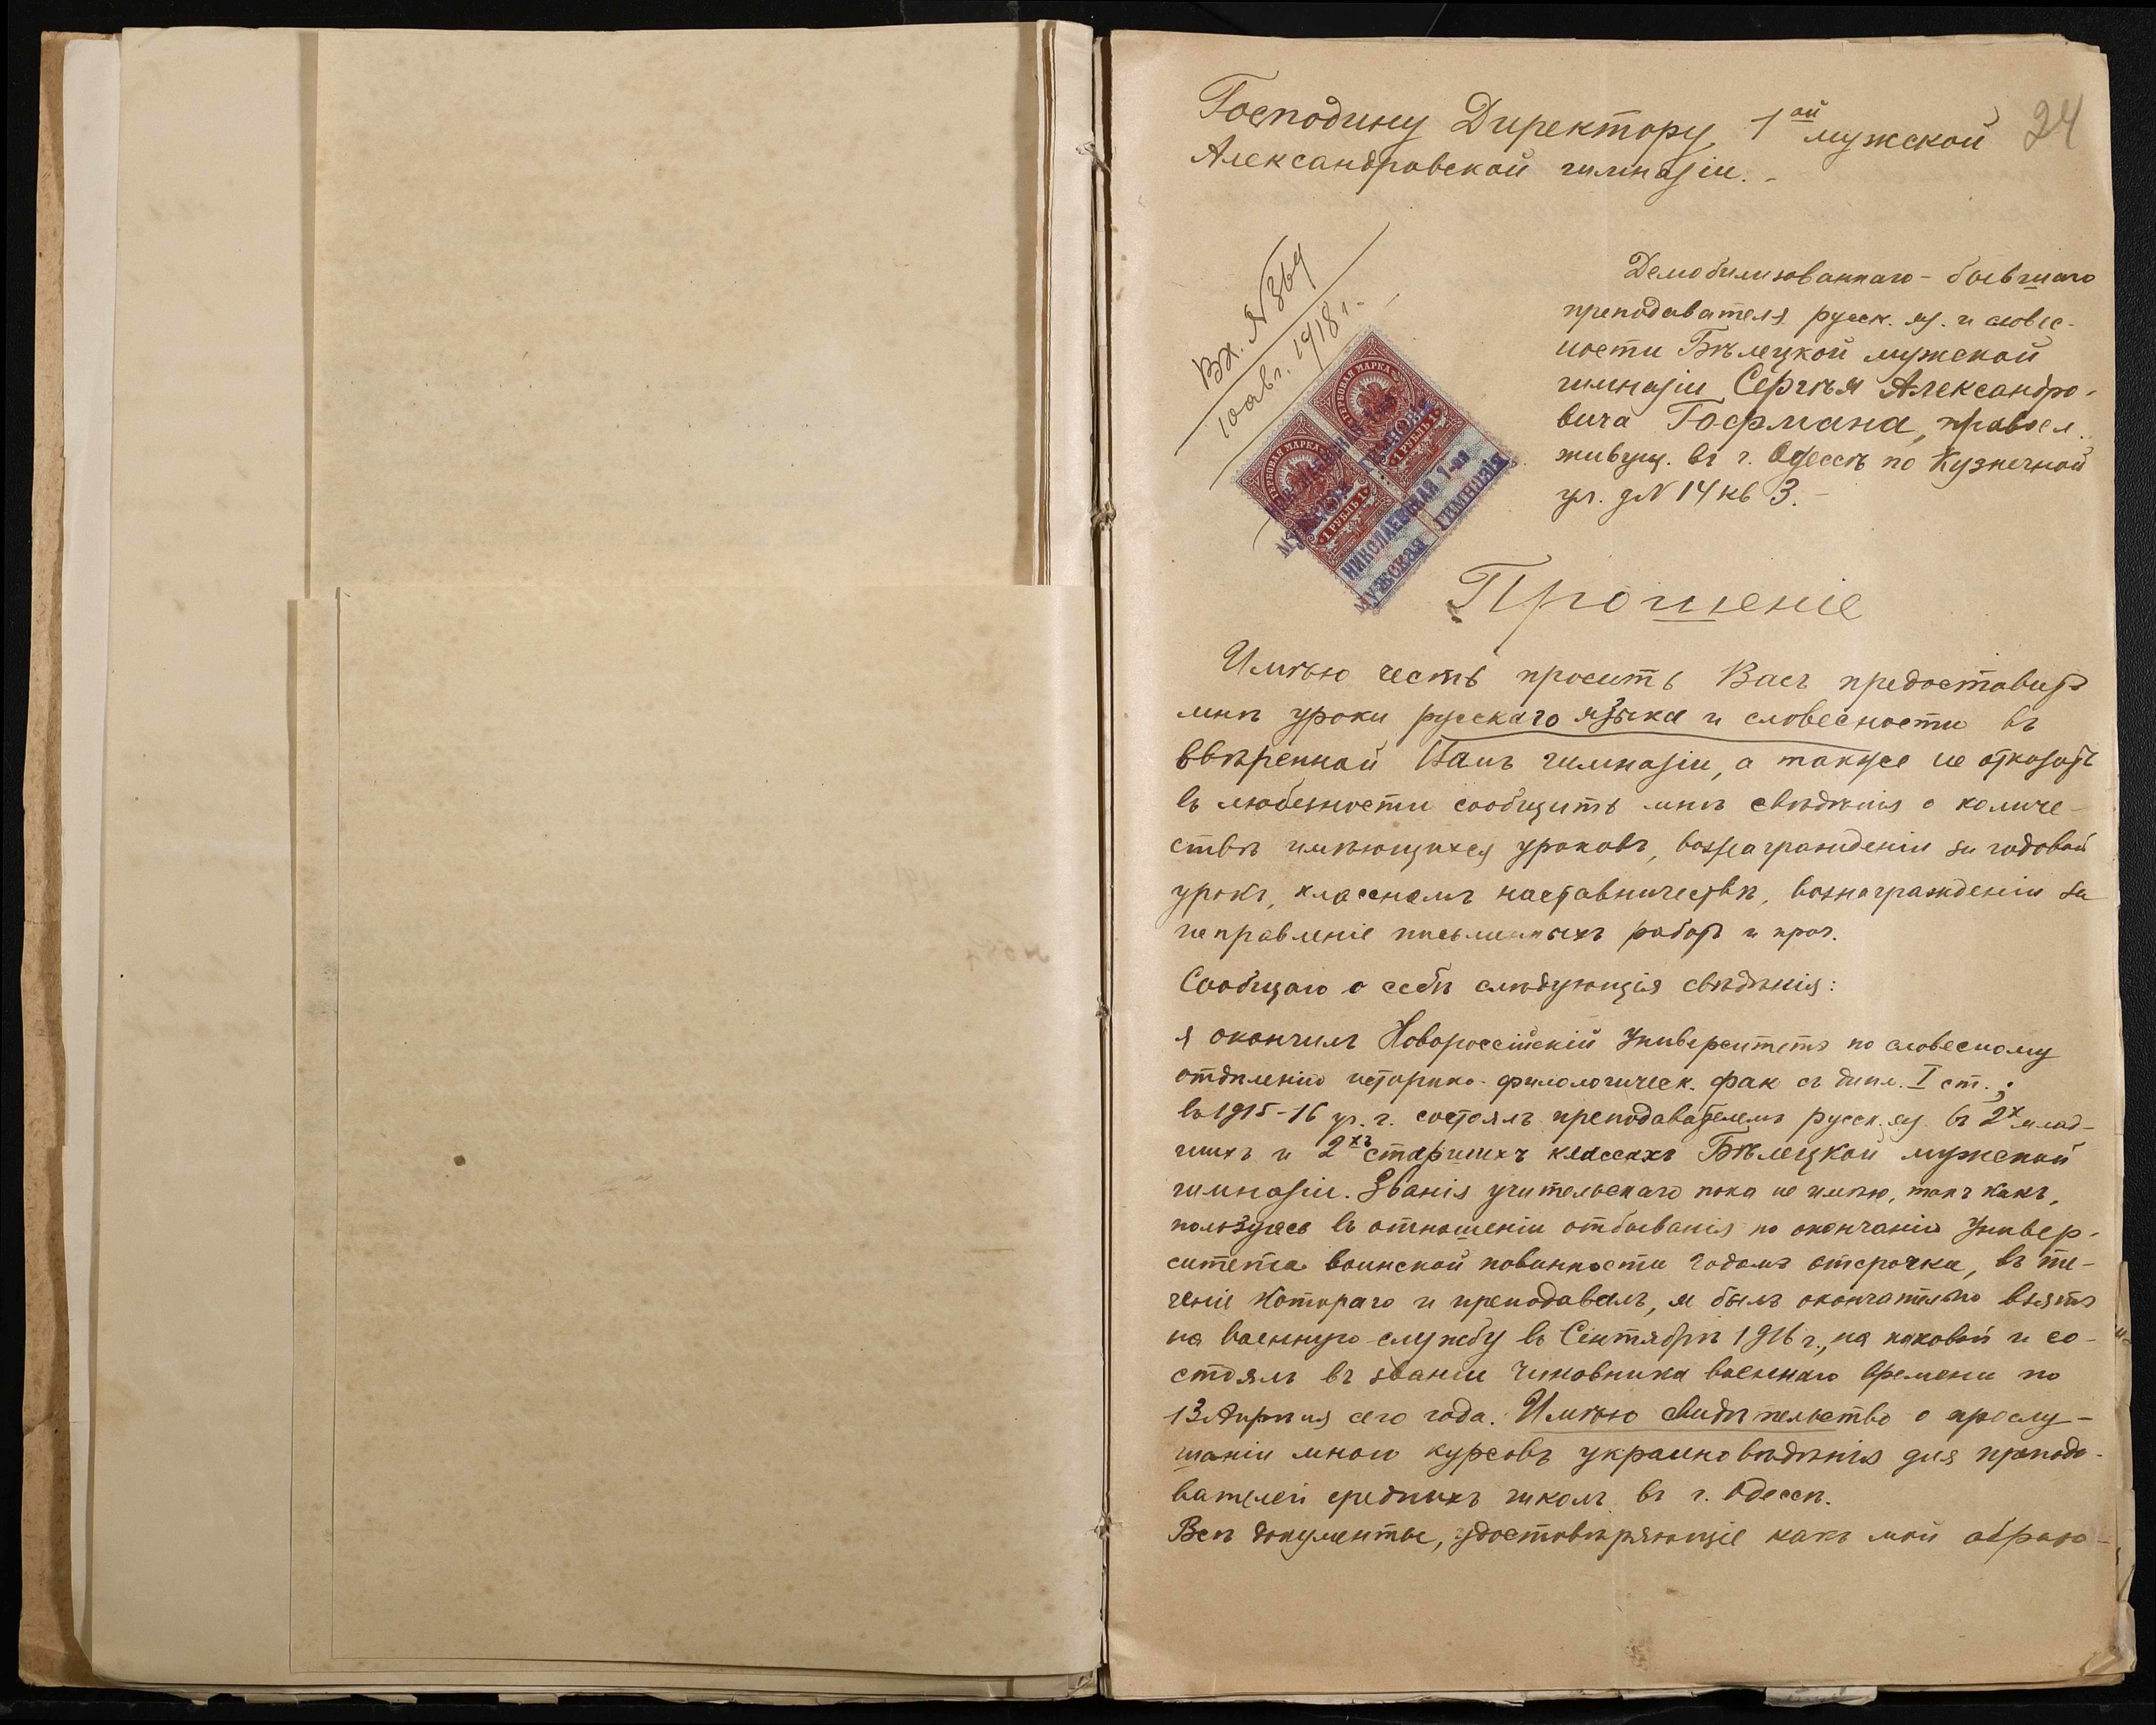 Господину Директору 1ой мужской
Александровской гимназіи.
24
Вх. №364
10 авг. 1918 г.
Демобилизованнаго - бывшаго
преподавателя русск. яз. и словес-
ности Бѣлецкой мужской
гимназіи Сергѣя Александро-
вича Гофмана, правосл.
живущ. въ г. Одессѣ по Кузнечной
ул. д№ 14 кв 3.-
ГЕРБОВАЯ МАРКА
1 РУБЛЬ 1
ГЕРБОВАЯ МАРКА
1 РУБЛЬ 1
НИКОЛАЕВСКАЯ 1-ая
МУЖСКАЯ ГИМНАЗІЯ
Прошеніе
Имѣю честь просить Васъ предоставить
мнѣ уроки русскаго языка и словесности въ
ввѣренной Вамъ гимназіи, а также не отказать
въ любезности сообщить мнѣ свѣдѣнія о количе-
ствѣ имѣющихся уроковъ, вознагражденіи за годовой
урокъ, классномъ наставничествѣ, вознагражденіи за
исправленіе письменныхъ работъ и проч.
Сообщаю о себѣ слѣдующія свѣдѣнія:
я окончилъ Новороссійскій Университетъ по словесному
отдѣленію историко-филологическ. фак съ дипл. I ст.;
въ 1915-16 уч. г. состоялъ преподавателемъ русск. яз. въ 2х млад-
шихъ и 2хъ старшихъ классахъ Бѣлецкой мужской
гимназіи. Званія учительскаго пока не имѣю, такъ какъ,
пользуясь въ отношеніи отбыванія по окончаніи Универ-
ситета воинской повинности годомъ отсрочки, въ те-
ченіе котораго и преподавалъ, я былъ окончательно взятъ
на военную службу въ Сентябрѣ 1916 г., на каковой и со-
стоялъ въ званіи чиновника военнаго времени по
13 Апрѣля сего года. Имѣю свидѣтельство о прослу-
шаніи мною курсовъ украиновѣдѣнія для препода-
вателей среднихъ школъ въ г. Одессѣ.
Всѣ документы, удостовѣряющіе какъ мой образо-